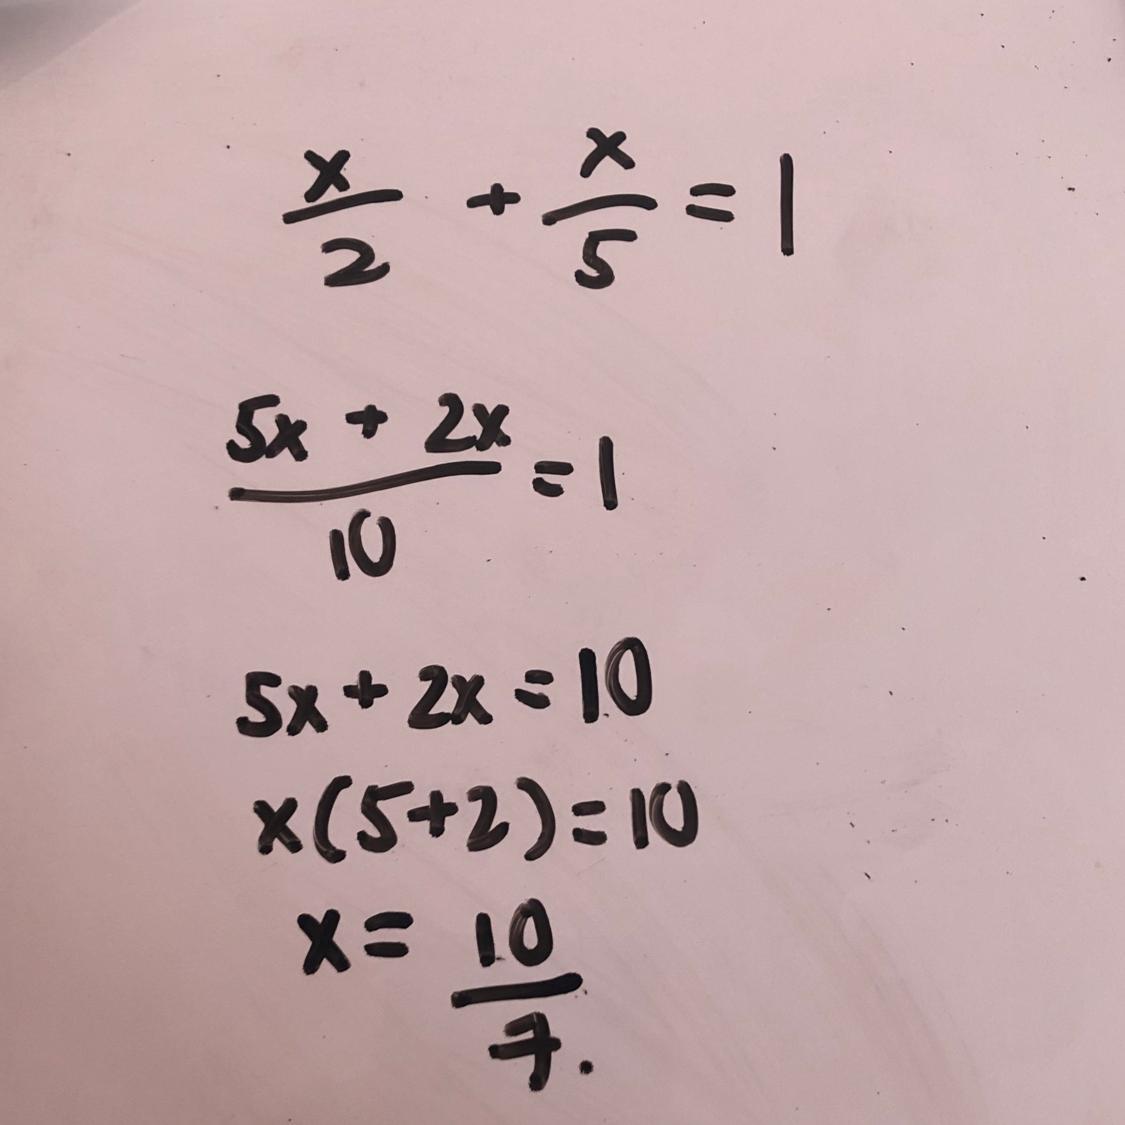 x/2 + x/5 = 1
(5x + 2x)/10 = 1
5x + 2x = 10
x(5+2) = 10
x = 10/7.